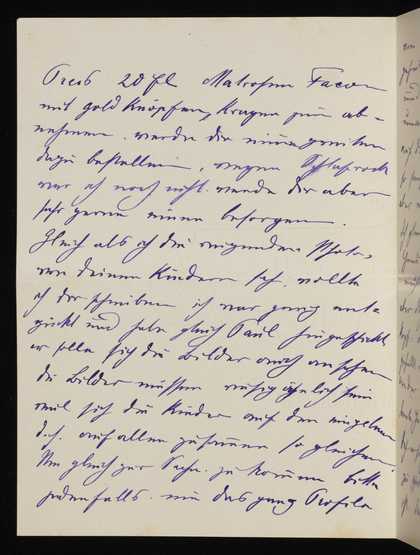 Preis 20 fl Matrosen Facon
mit gold Knöpfen, Kragen zum ab-
nehmen. werde dir einen
dazu bestellen, wegen Schlafrock
war ich noch nicht werde dir aber
sehr gerne einen besorgen.
Gleich als ich die reizenden Photo,
von deinen Kindern sah, wollte
ich dir schreiben ich war ganz ent-
zückt und habe gleich Paul hingeschickt
er solle sich die Bilder auch ansehen
die Bilder müssen riesig ähnlich sein
weil sich die Kinder auf den einzelnen
d. h. auf allen zusammen so gleichen.
Um gleich zur Sache zu kommen bitte
jedenfalls. nur das ganz Profile